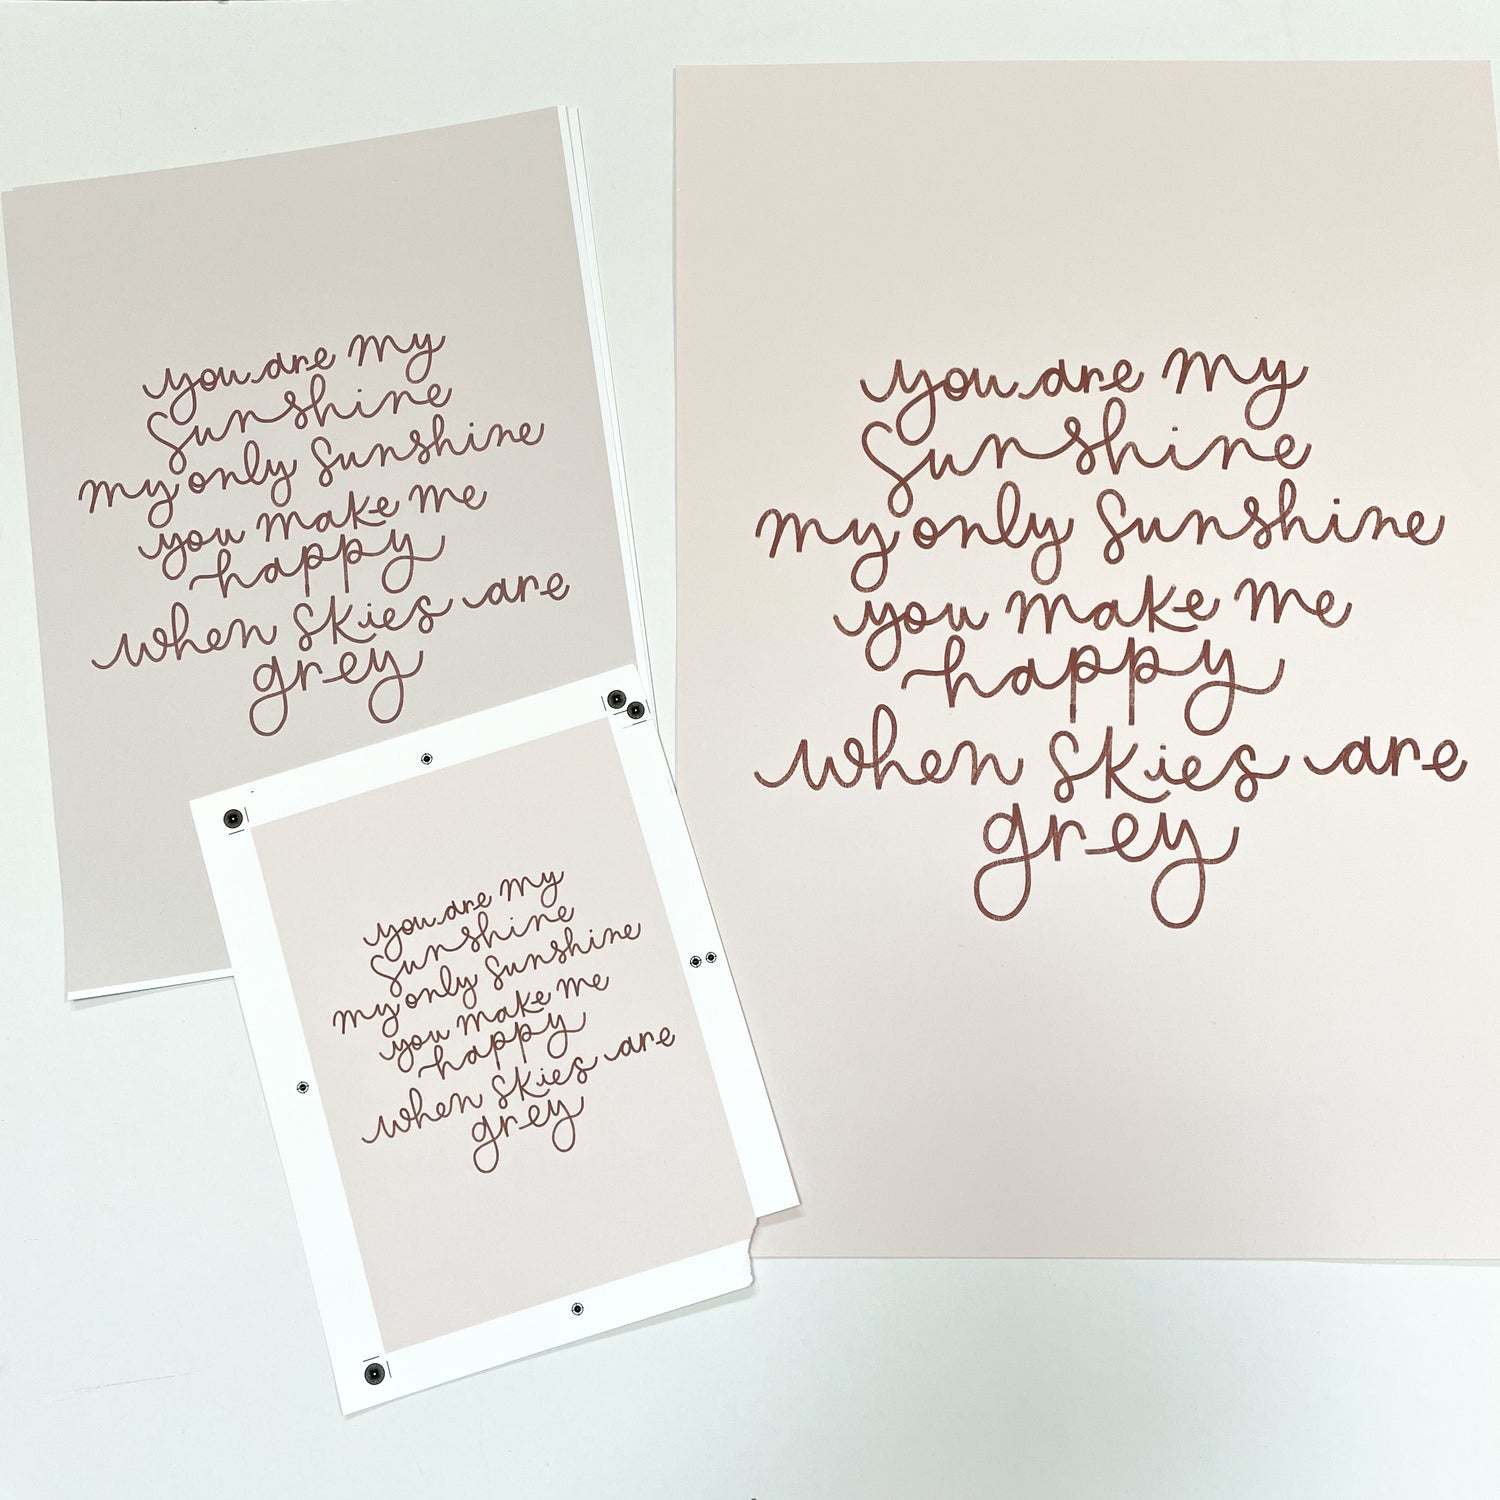 you are my
sunshine
my only sunshine
you make me
happy
when skies are
grey
you are my
sunshine
my only sunshine
you make me
happy
when skies are
grey
you are my
sunshine
my only sunshine
you make me
happy
when skies are
grey